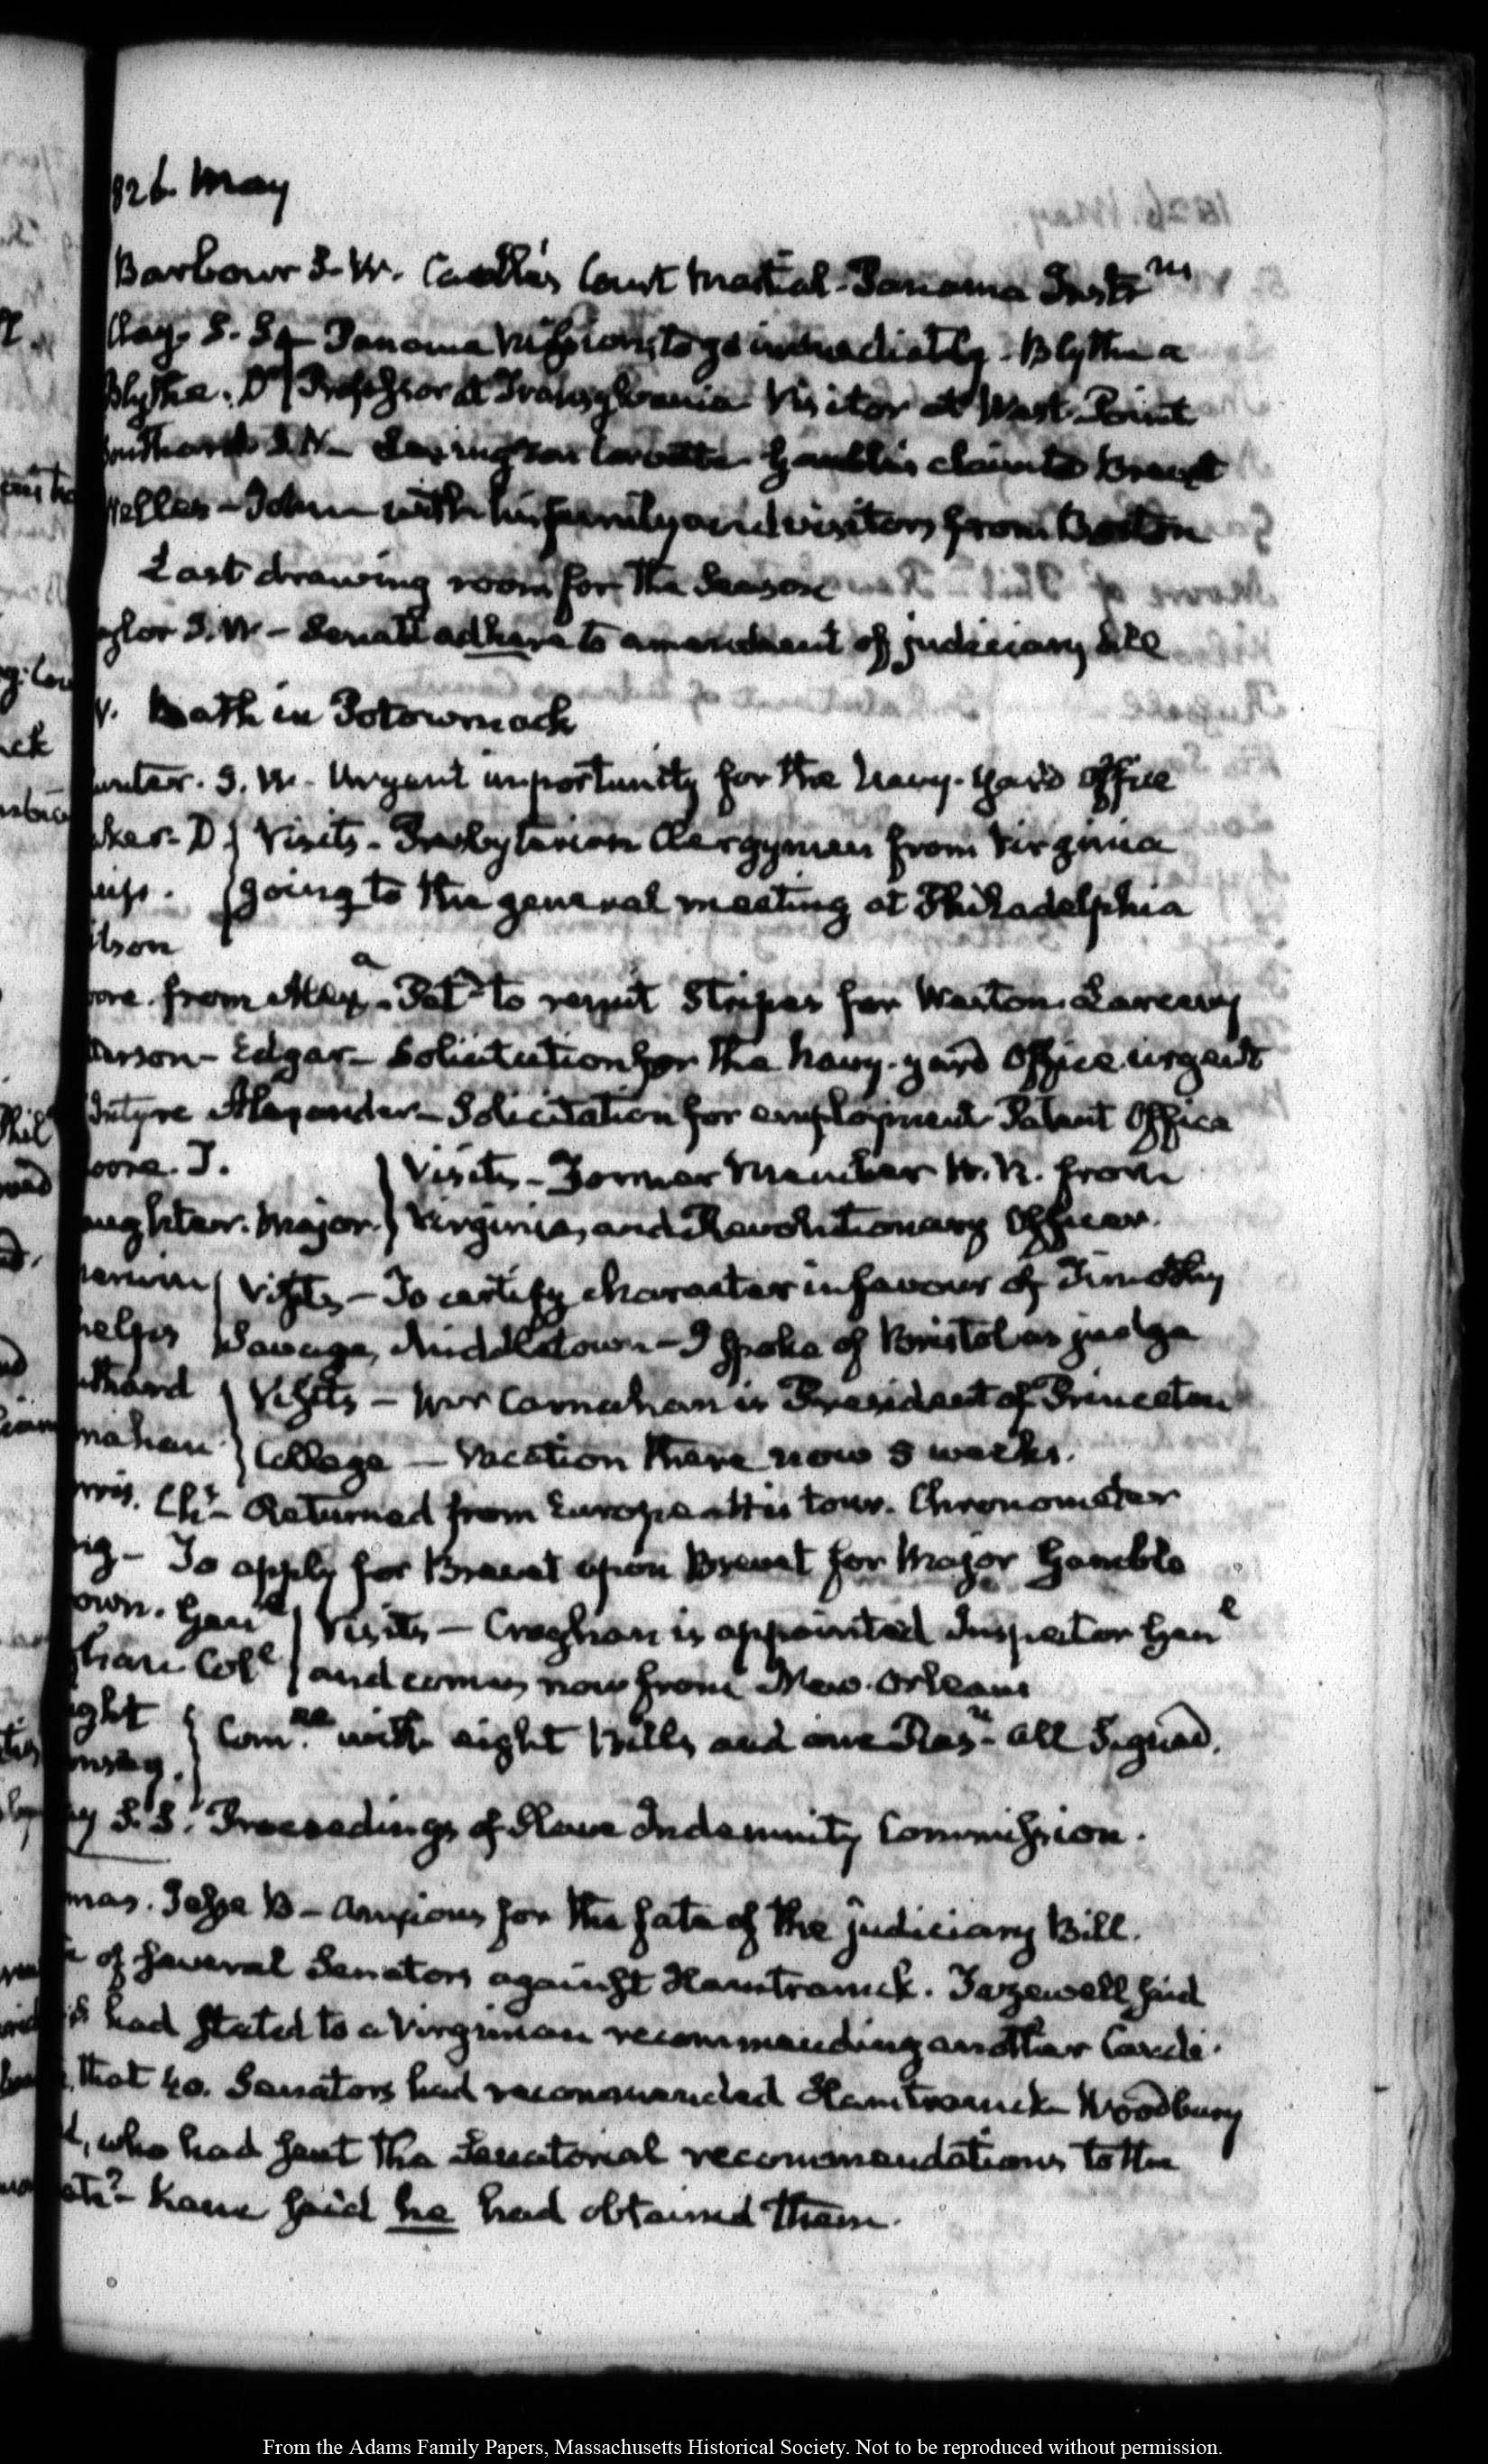 826. May
Barbour S. W. Court Martial - Panama Instrns
Clay. S. St Panama Mission, to go immediately - Blythe a
Blythe. Dr } Professor at Transylvania Visitor at West-Point
outhard S. N. Gamble's claim to Brevet
Welles - John with his family and visitors from Boston
Last drawing room for the Season
aylor S. W - Senate adhere to amendment of judiciary bill
V. Bath in Potowmack
unter. S. W - Urgent importunity for the Navy-yard office
aker - D } Visits - Presbyterian Clergymen from Virginia
{ going to the general meeting at Philadelphia
ilson
oore from Alexa - Petn to remit Stripes for Larceny
terson - Edgar - Solicitation for the Navy-yard Office urgent
Intyre Alexander - Solicitation for employment Patent Office
oore. T. } Visits - Former Member H. R. from
aughter. Major. } Virginia, and Revolutionary Officer.
{ Visits - To certify character in favour of Timothy
helps Savage, Middletown - I spoke of Bristol as judge
uthard } Visits - Mr Carnahan is President of Princeton
nahan } College - Vacation there now 5 weeks.
rris. Chs - Returned from Europe - His tour. Chronometer
ig - To apply for Brevet upon Brevet for Major Gamble
own. Genl } Visits - Croghan is appointed Inspector Genl
ghan Coll } and comes now from New-Orleans
ight { Comee with eight Bills and one Resn - all Signed.
msey. }
ay S. S. Proceedings of Slave Indemnity Commission.
mas. Jesse B - Anxious for the fate of the judiciary Bill.
of several Senators against Hamtramck. Tazewell said
had stated to a Virginian recommending another Candi-
that 40. Senators had recommended Hamtramck - Woodbury
d, who had sent the Senatorial recommendations to the
ate? - Kane said he had obtained them.
From the Adams Family Papers, Massachusetts Historical Society. Not to be reproduced without permission.